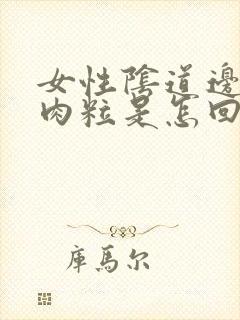 女性陰道邊
肉粒是怎回
庫馬尔